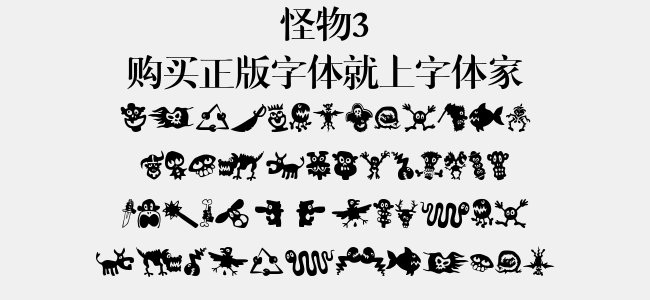 怪物3
购买正版字体就上字体家